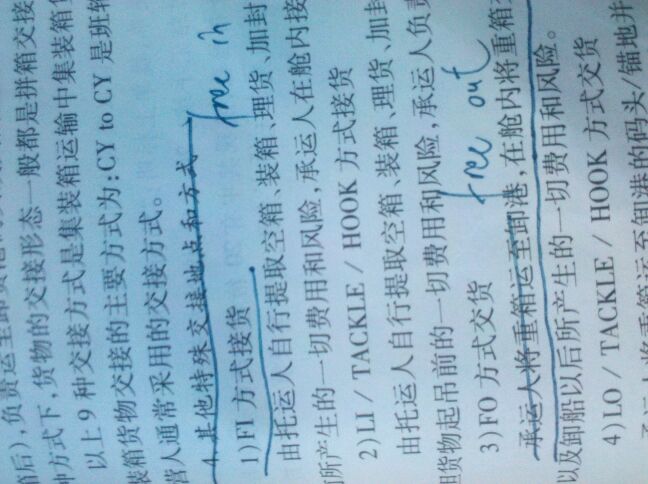 箱后),负责运至卸货
种方式下,货物的交接形态一般都是拼箱交接
以上 9 种交接方式是集装箱运输中集装箱
装箱货物交接的主要方式为:CY to CY 是班轮
营人通常采用的交接方式。
4. 其他特殊交接地点和方式
free in
1)FI 方式接货
由托运人自行提取空箱、装箱、理货、加封
所产生的一切费用和风险,承运人在舱内接
2)LI / TACKLE / HOOK 方式接货
由托运人自行提取空箱、装箱、理货、加封
货物起吊前的一切费用和风险,承运人负责
free out
3)FO 方式交货
承运人将重箱运至卸港,在舱内将重箱
以及卸船以后所产生的一切费用和风险。
4)LO / TACKLE / HOOK 方式交货
承运人将重箱运至卸港的码头/锚地并